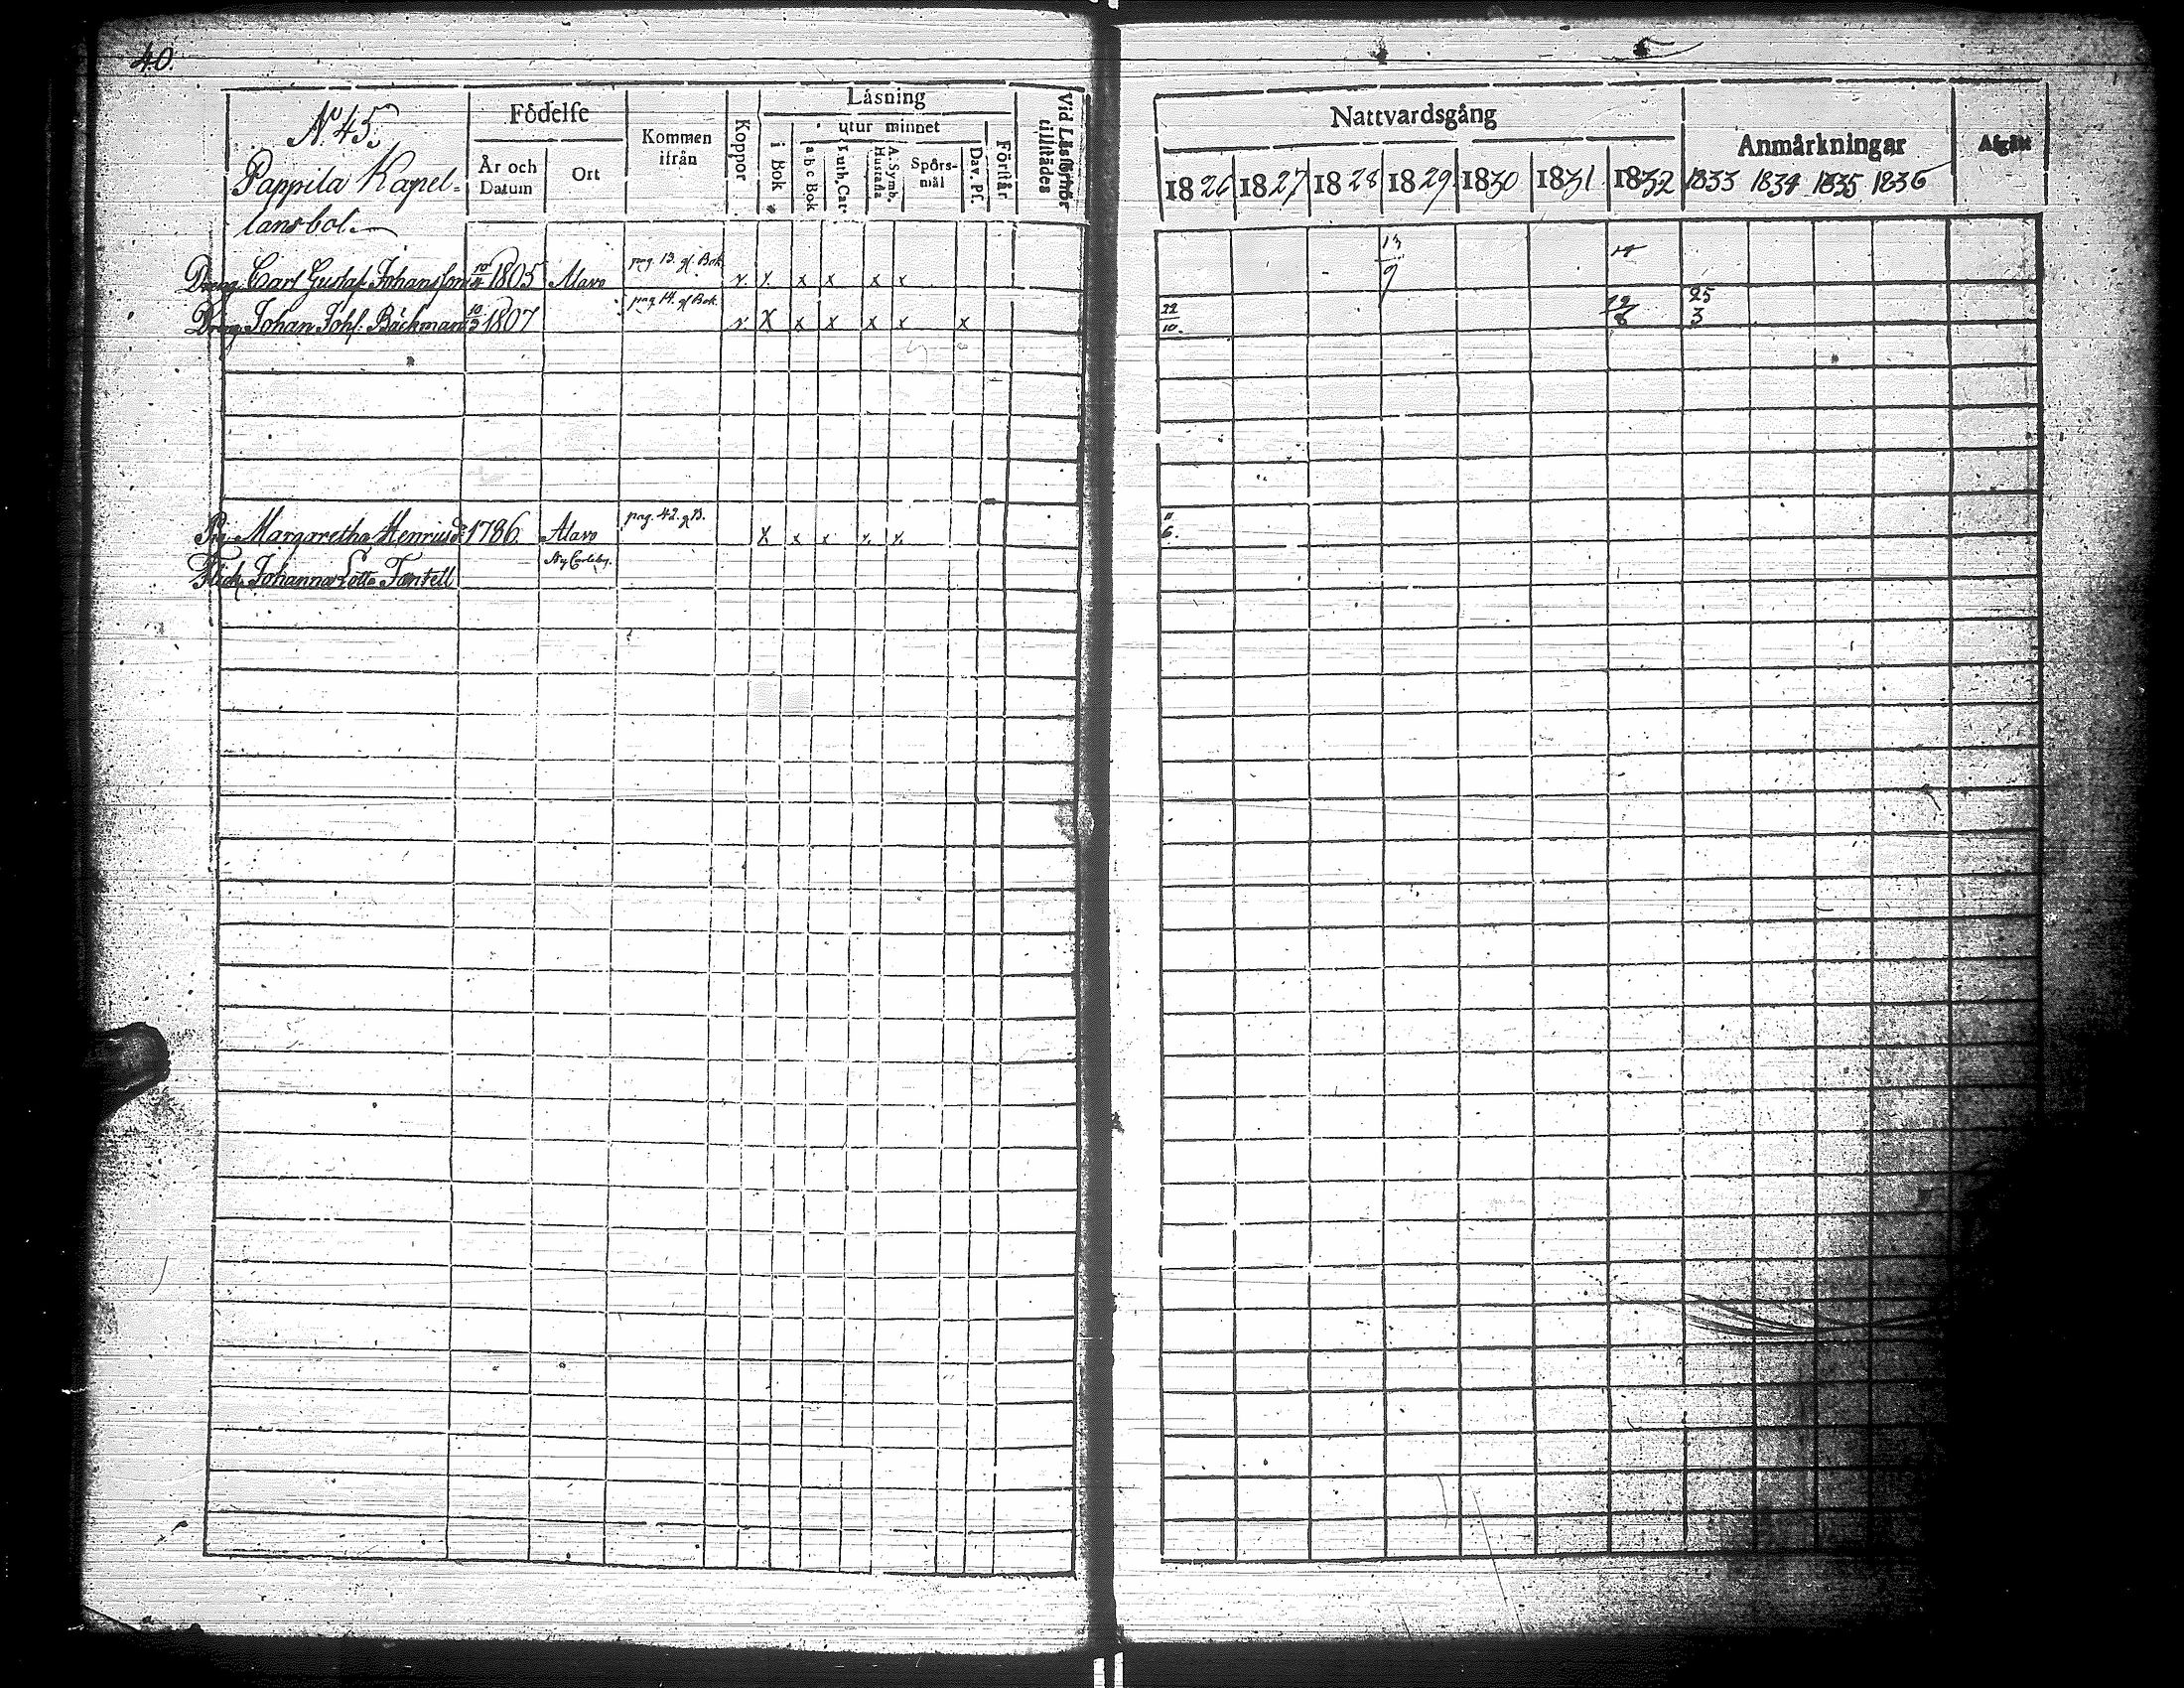 40.
N 45.
Pappila Kapel-
lansbol.
Födelse
År och Datum
Ort
Kommen ifrån
Koppor
Läsning
i Bok
utur minnet
a b c Bok
Luth. Cat.
Hustafla
A. Symb.
Spörs-
mål
Dav. Ps.
Förstår
Vid Läsförhör tillstädes
Nattvardsgång
Anmärkningar
Afgått
1826 1827 1828 1829 1830 1831 1832 1833 1834 1835 1836
Dreng Carl Gustaf Johansson 10/4 1805 Alavo pag. 13. gl. Bok v. x x x x x 13/9
Dreng Johan Johs. Bäckman 10/3 1807 pag 14. gl Bok. v. x x x x x x 22/10. 12/8 25/3
Pig. Margaretha Henricsd. 1786 Alavo pag. 42. g B. x x x x x 11/6.
Flick. Johanna Lotta Fontell Ny Carleby.